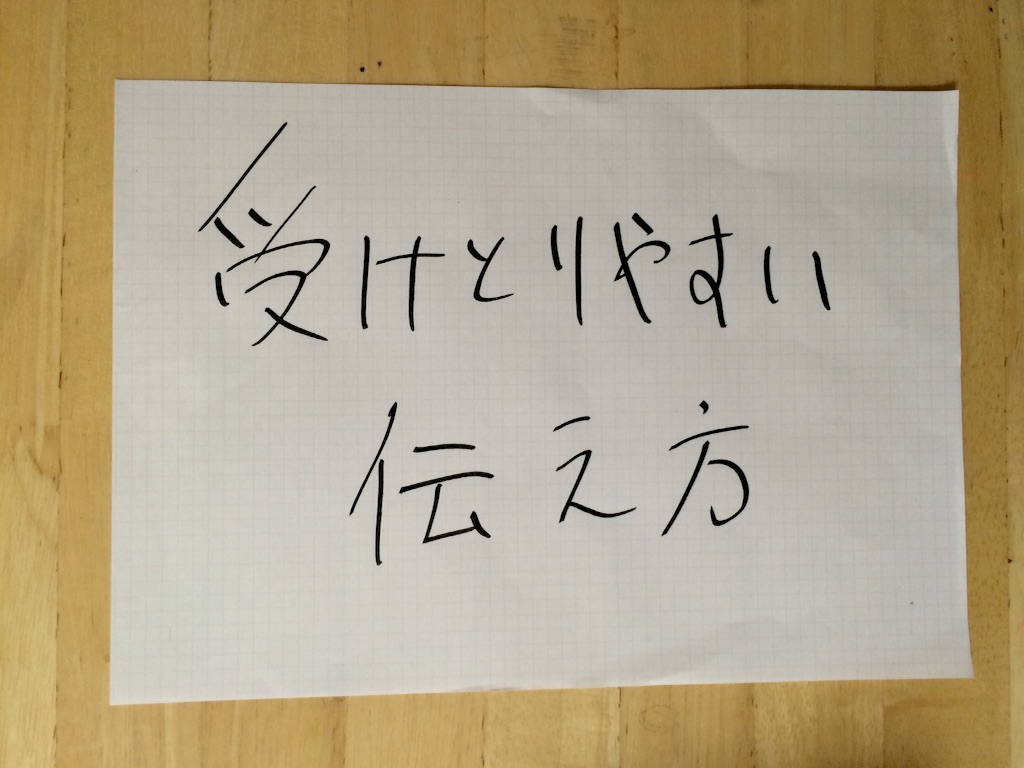 受けとりやすい
伝え方